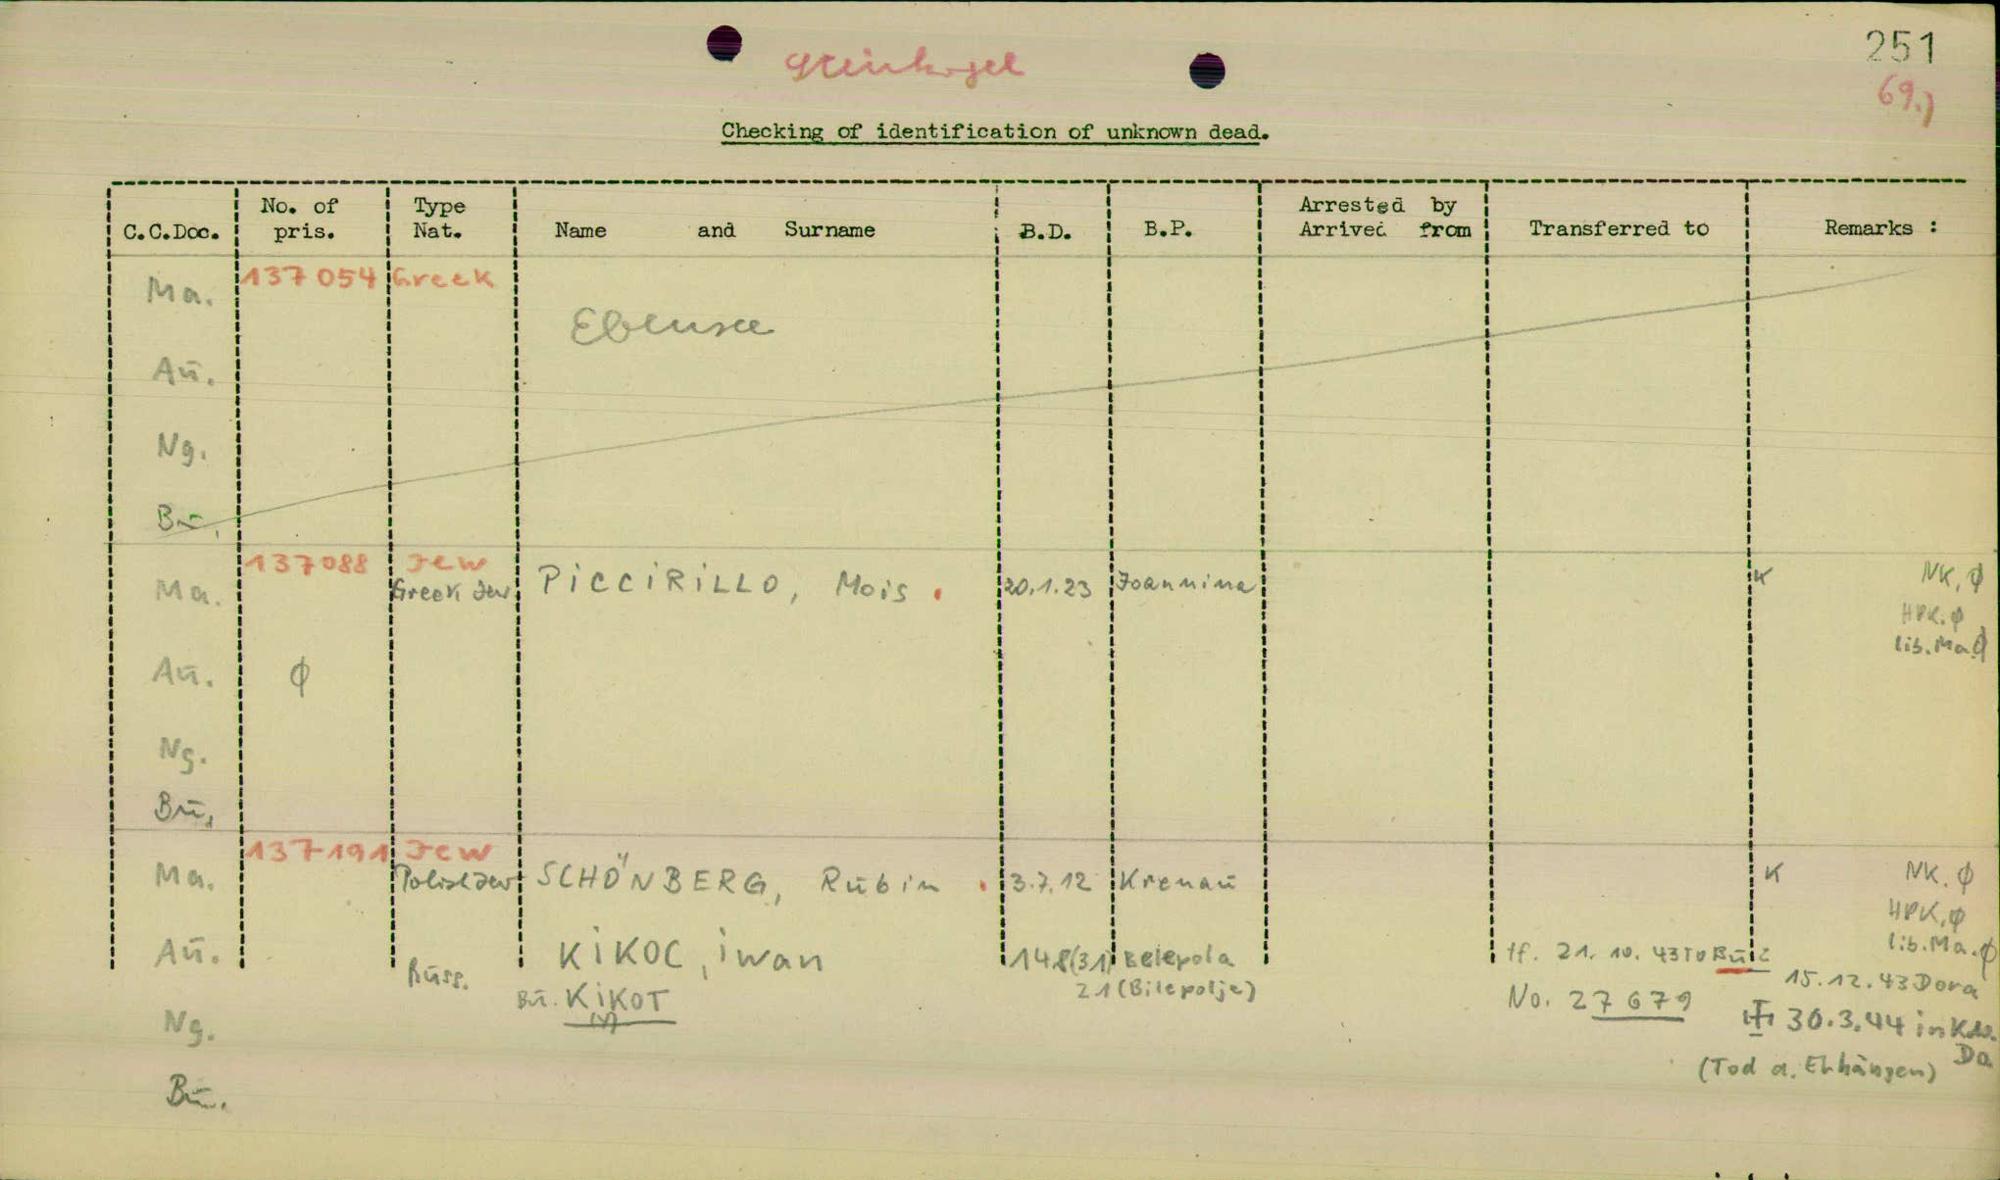 251
Steinkogel
69.)
Checking of identification of unknown dead.
C.C.Doc. No. of pris. Type Nat. Name and Surname B.D. B.P. Arrested by Arrived from Transferred to Remarks :
Ma. 137054 Greek
Ebensee
Aū.
Ng.
Bū.
137088 Jew
Ma. Greek Jew PiCCiRiLLO, Mois. 20.1.23 Joannina K NK. ϕ
HPK. ϕ
lib. Ma. ϕ
Aū. ϕ
Ng.
Bū.
137191 Jew
Ma. Polish Jew SCHÖNBERG, Rūbin . 3.7.12 Krenaū K NK. ϕ
HPK. ϕ
lib. Ma. ϕ
Aū. Rūss. KiKOC, iwan 14.8(31) Belepola tf. 21. 10. 43 To Bū
Bū. KiKOT 21 (Bilepolje) No. 27679 15.12.43 Dora
(Y)
Ng. 30.3.44 in
Da
(Tod d. Erhängen)
Bū.